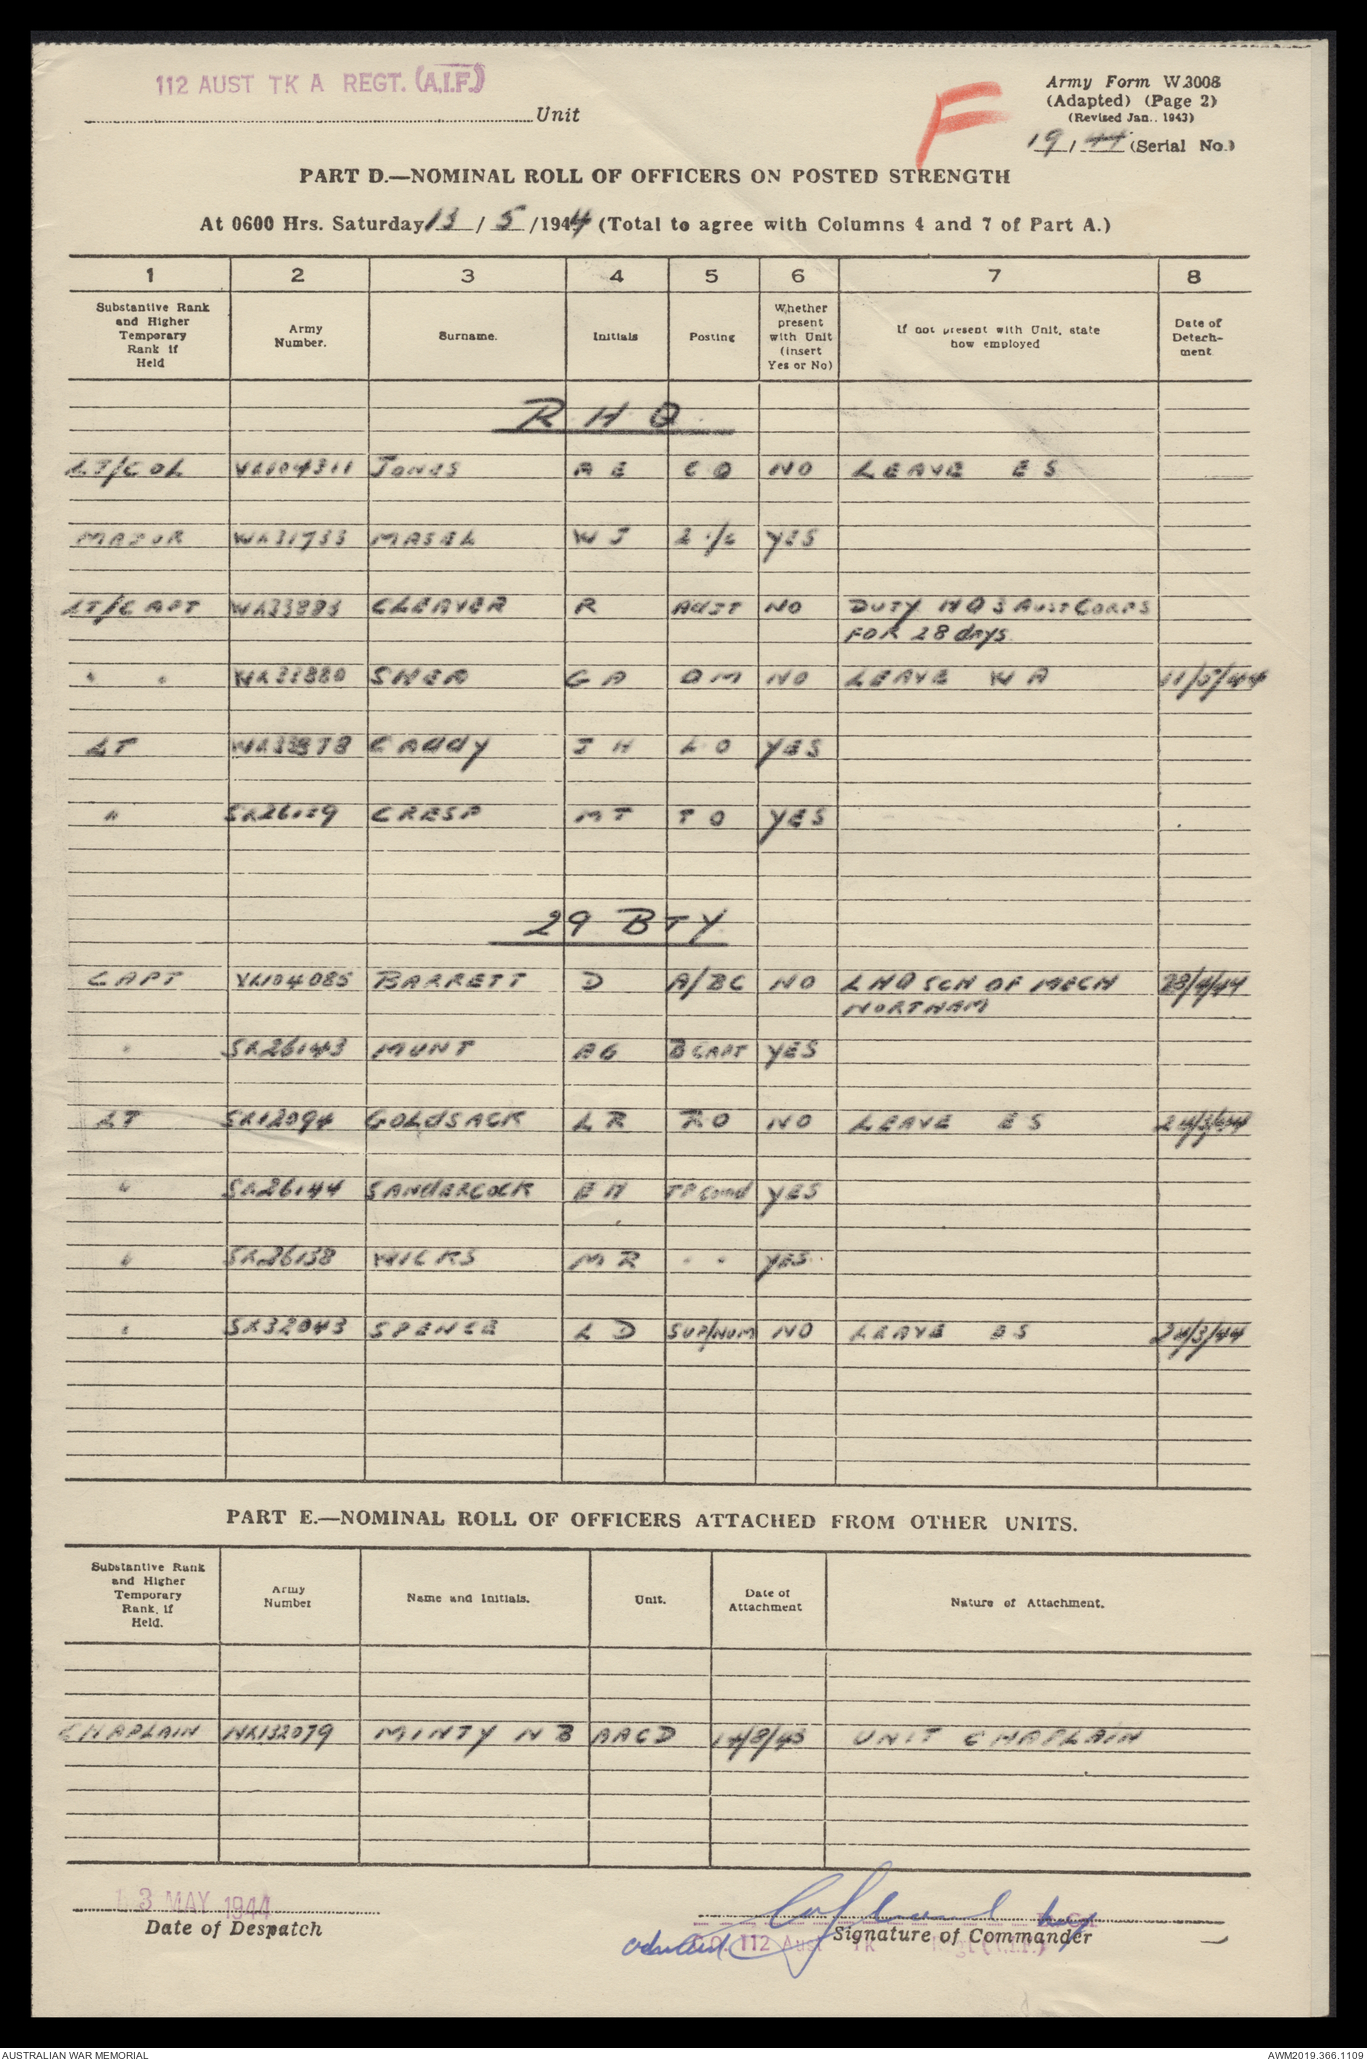 112 AUST TK A REGT. (A.I.F.)
Unit
F
Army Form W.3008
(Adapted) (Page 2)
(Revised Jan.. 1943)
19 / 44 (Serial No.)
PART D.—NOMINAL ROLL OF OFFICERS ON POSTED STRENGTH
At 0600 Hrs. Saturday 13 / 5 /1944 (Total to agree with Columns 4 and 7 of Part A.)
1 2 3 4 5 6 7 8
Substantive Rank and Higher Temporary Rank if Held Army Number. Surname. Initials Posting Whether present with Unit (insert Yes or No) If not present with Unit, state how employed Date of Detachment.
R H Q
LT/COL VX104311 JONES A E C O NO LEAVE E S
MAJOR WX31733 MASEL W J 2 i/c YES
LT/CAPT CLEAVER R ADJT NO DUTY HQ 3 AUST CORPS
FOR 28 days
" " WX33880 SHEA G A QM NO LEAVE W A 11/5/44
LT WX33878 CADDY J H L O YES
" CRESP M T T O YES
29 BTY
CAPT VX104085 BARRETT D A/BC NO LHQ SCH OF MECH 28/4/44
NORTHAM
" SX26143 MUNT A G B CAPT YES
LT SX12094 GOLDSACK L R R O NO LEAVE E S
" SX26144 SANDERCOCK E H TP Comd YES
" SX26138 WICKS M R " " YES
" SX32043 SPENCE L D SUP/NUM NO LEAVE E S 24/3/44
PART E.—NOMINAL ROLL OF OFFICERS ATTACHED FROM OTHER UNITS.
Substantive Rank and Higher Temporary Rank, if Held. Army Number Name and Initials. Unit. Date of Attachment Nature of Attachment.
CHAPLAIN NX132079 MINTY N B AACD 14/8/43 UNIT CHAPLAIN
13 MAY 1944
Date of Despatch
Signature of Commander
112 Aust Tk Regt (A.I.F.)
AUSTRALIAN WAR MEMORIAL
AWM2019.366.1109